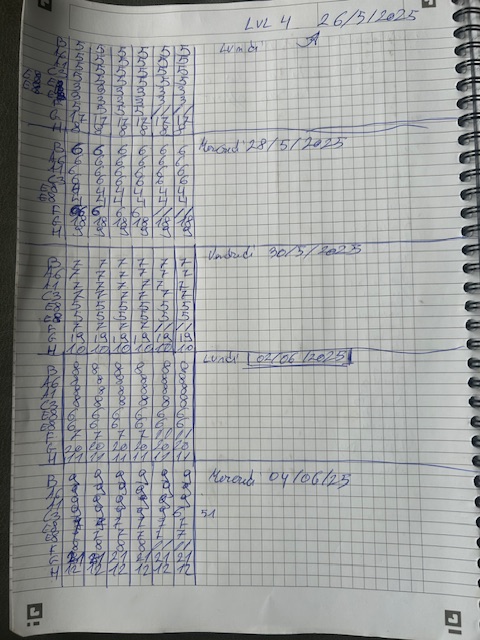 LVL 4 26/5/2025
Lundi A
B 5 5 5 5 5 5
A6 5 5 5 5 5 5
A1 5 5 5 5 5 5
C3 5 5 5 5 5 5
3 3 3 3 3 3
3 3 3 3 3 3
F 5 5 5 5 / / / /
G 17 17 17 17 17 17
H 8 8 8 8 8 8
Mercredi 28/5/2025
B 6 6 6 6 6 6
A6 6 6 6 6 6 6
A1 6 6 6 6 6 6
C3 6 6 6 6 6 6
E8 4 4 4 4 4 4
4 4 4 4 4 4
F 6 6 6 6 / / / /
G 18 18 18 18 18 18
H 9 9 9 9 9 9
Vendredi 30/5/2025
B 7 7 7 7 7 7
A6 7 7 7 7 7 7
A1 7 7 7 7 7 7
C3 7 7 7 7 7 7
E8 5 5 5 5 5 5
5 5 5 5 5 5
F 7 7 7 7 / / / /
G 19 19 19 19 19 19
H 10 10 10 10 10 10
Lundi 02/06/2025
B 8 8 8 8 8 8
A6 8 8 8 8 8 8
A1 8 8 8 8 8 8
C3 8 8 8 8 8 8
E8 6 6 6 6 6 6
E8 6 6 6 6 6 6
F 7 7 7 7 / / / /
G 20 20 20 20 20 20
H 11 11 11 11 11 11
Mercredi 04/06/25
B 9 9 9 9 9 9
A6 9 9 9 9 9 9
A1 9 9 9 9 9 9
C3 9 9 9 9 9 6 51
E8 7 7 7 7 7 7
E8 7 7 7 7 7 7
F 8 8 8 8 / / / /
G 21 21 21 21 21 21
H 12 12 12 12 12 12